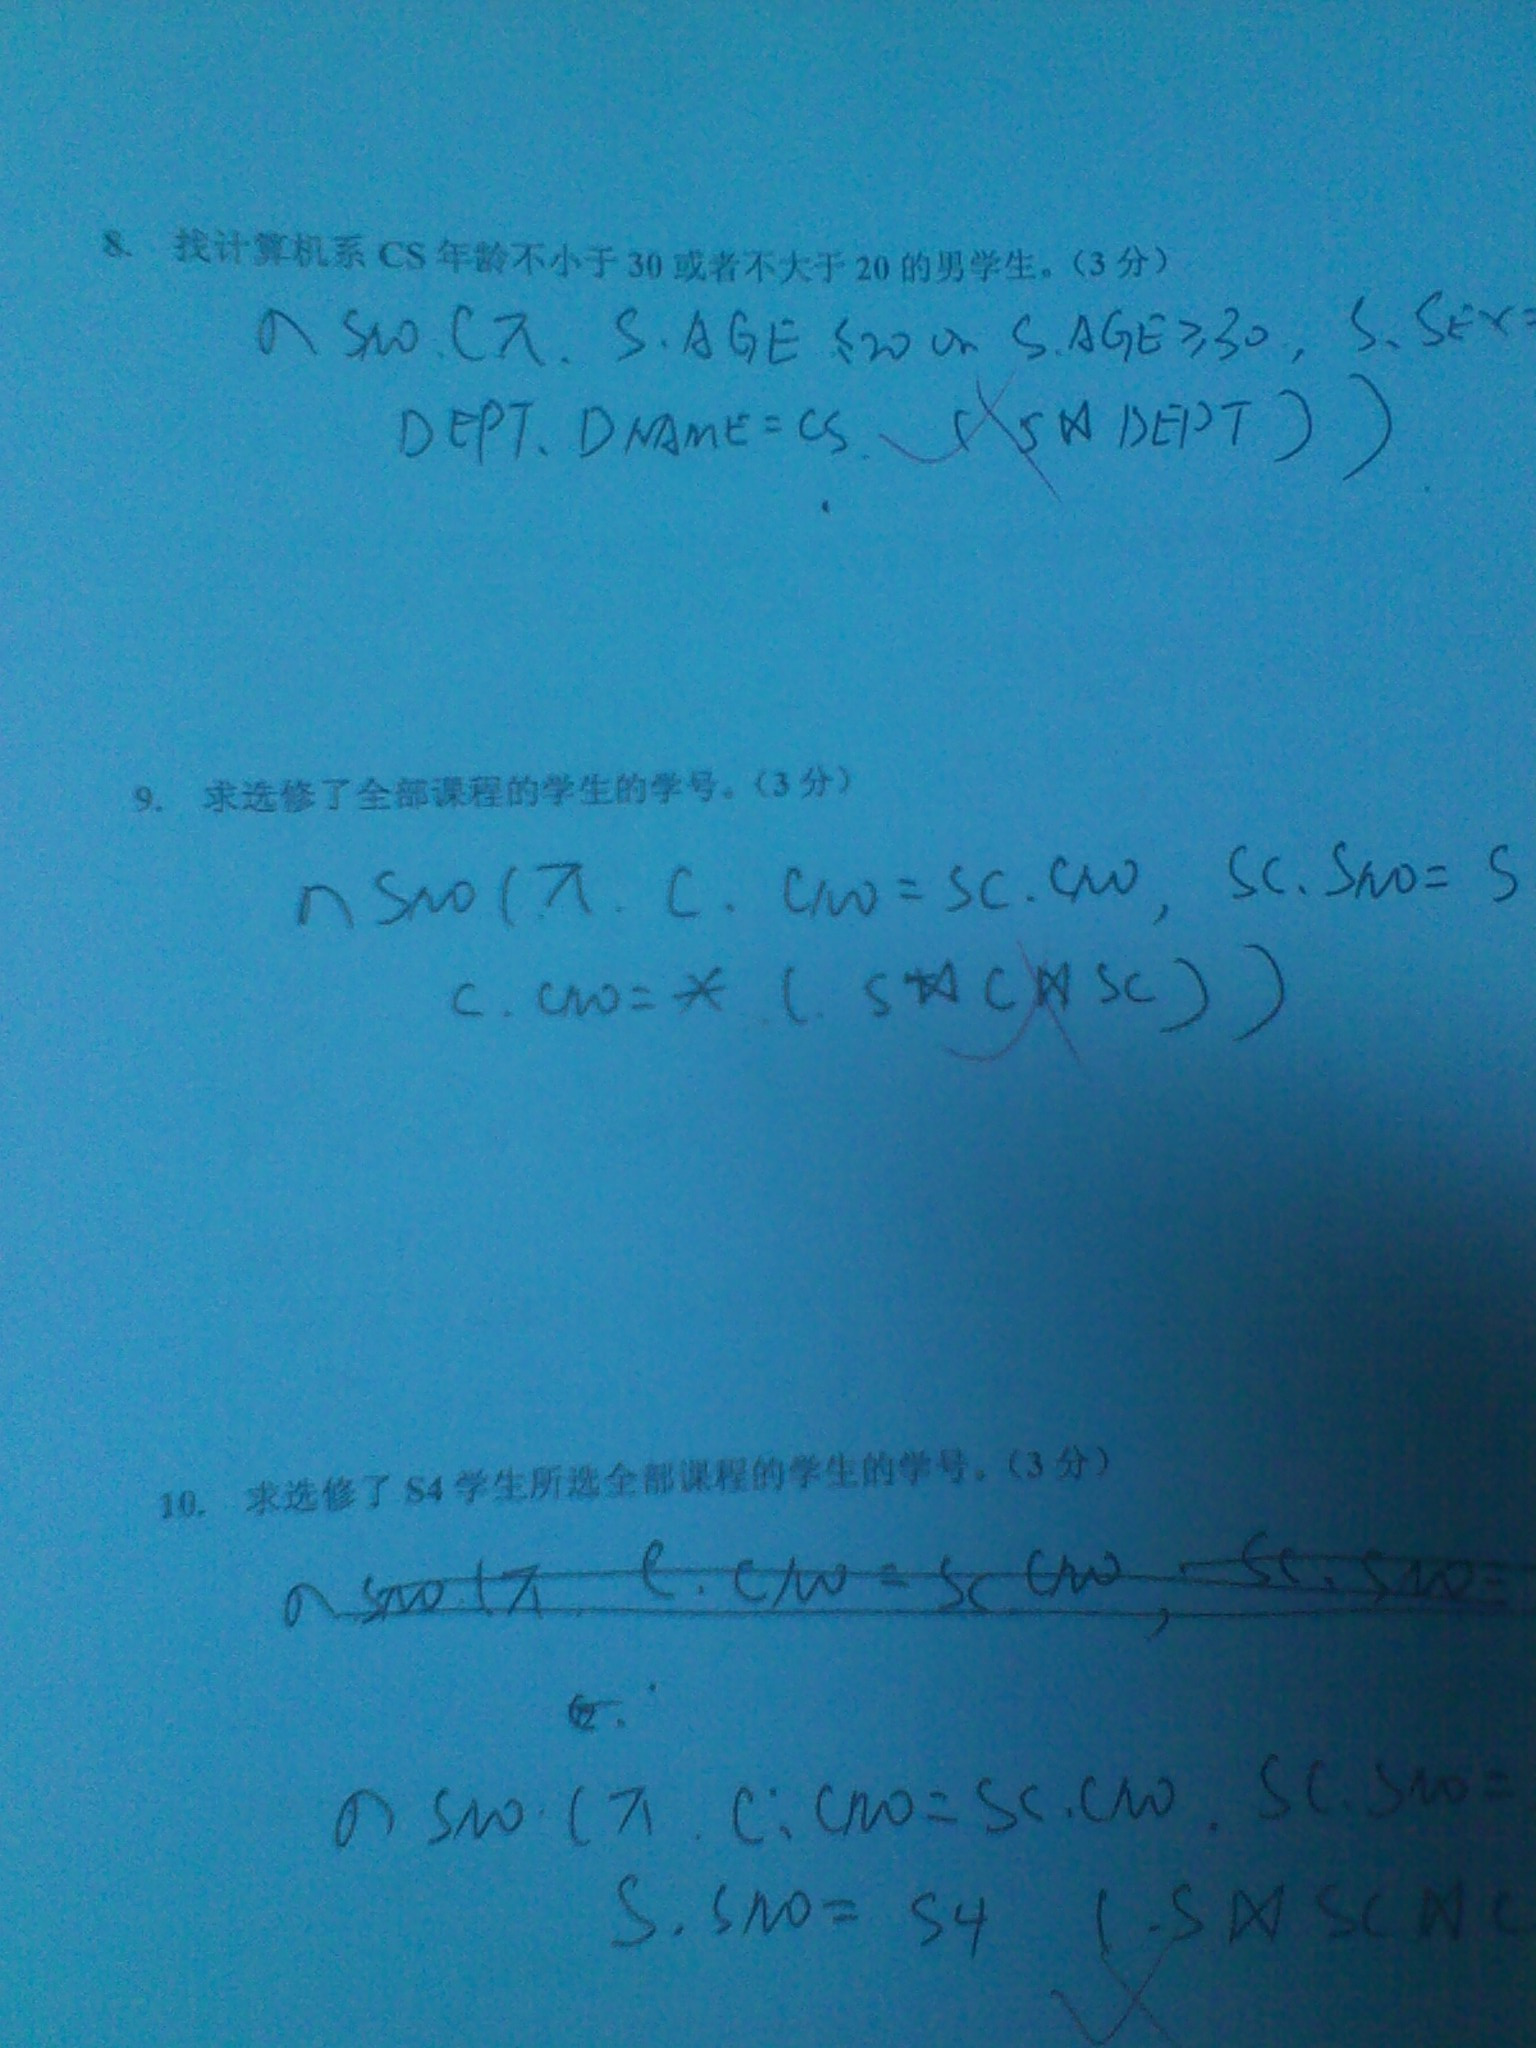 8. 找计算机系 CS 年龄不小于 30 或者不大于 20 的男学生。（3 分）
σ SNO (π. S.AGE ≤20 or S.AGE≥30, S.SEX=
DEPT. DNAME=CS ( S⋈DEPT ) )
9. 求选修了全部课程的学生的学号。（3 分）
σ SNO (π. C. CNO = SC. CNO, SC. SNO = S
C. CNO = * ( S⋈C⋈SC ) )
10. 求选修了 S4 学生所选全部课程的学生的学号。（3 分）
σ SNO (π C. CNO = SC CNO, SC. SNO=
σ SNO (π. C. CNO=SC. CNO. SC. SNO=
S. SNO= S4 ( S⋈SC⋈C